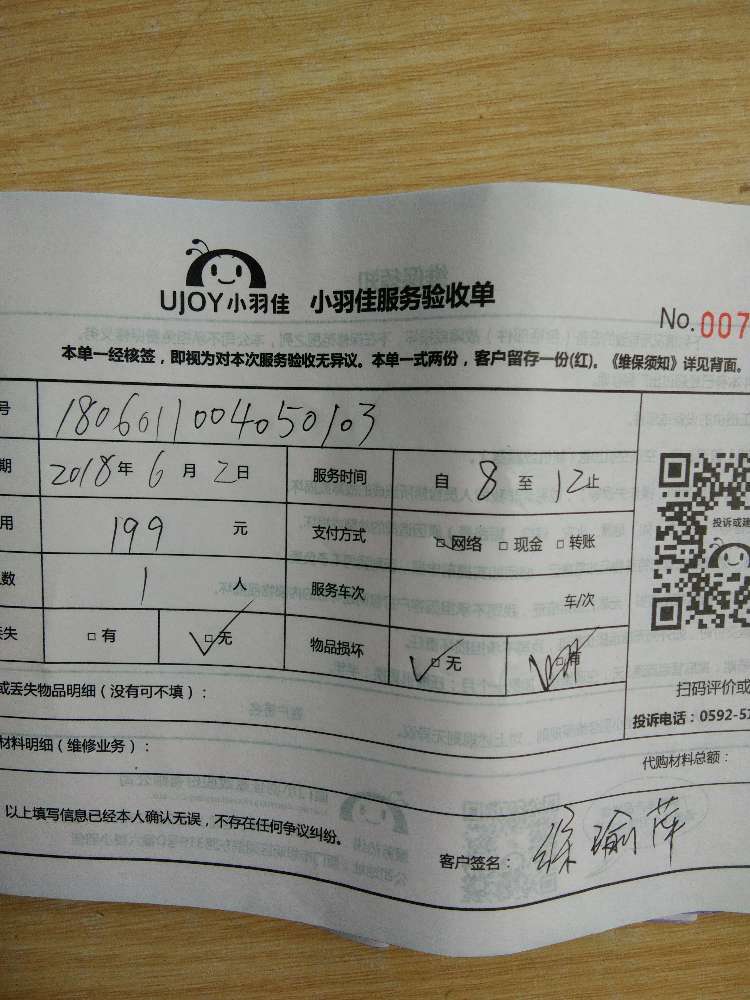 UJOY小羽佳 小羽佳服务验收单
No. 007
本单一经核签，即视为对本次服务验收无异议。本单一式两份，客户留存一份(红)。《维保须知》详见背面。
号 1806011004050103
期 2018年6月2日 服务时间 自8至12止
用 199 元 支付方式 □网络 □现金 □转账
数 1 人 服务车次 车/次
丢失 □有 □无 物品损坏 □无 □有
投诉或建
扫码评价或
投诉电话：0592-52
或丢失物品明细（没有可不填）：
材料明细（维修业务）：
代购材料总额：
以上填写信息已经本人确认无误，不存在任何争议纠纷。
客户签名： 徐瑜萍